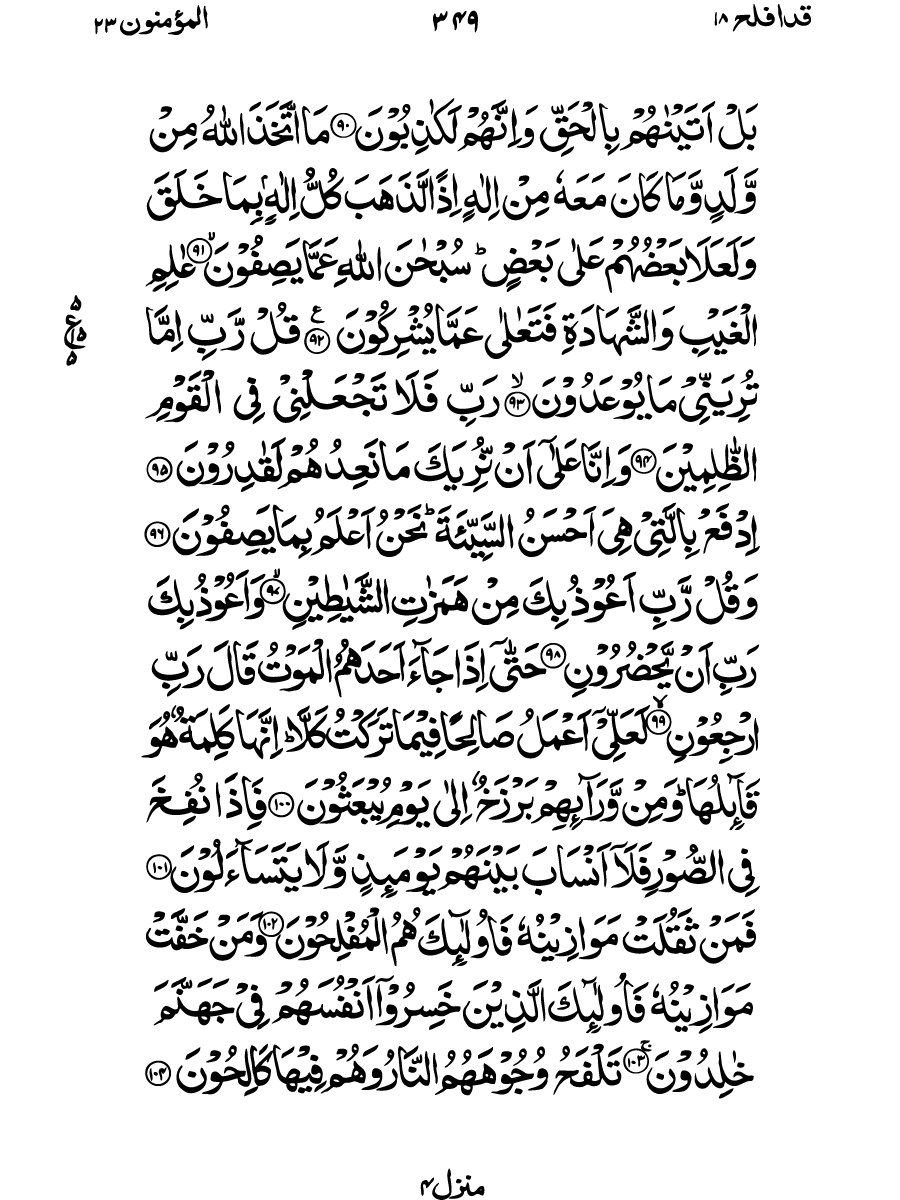 قد افلح ١٨
٣٤٩
المؤمنون ٢٣
بَلْ اَتَيْنٰهُمْ بِالْحَقِّ وَاِنَّهُمْ لَكٰذِبُوْنَ ﴿۹۰﴾ مَا اتَّخَذَ اللّٰهُ مِنْ
وَّلَدٍ وَّمَا كَانَ مَعَهٗ مِنْ اِلٰهٍ اِذًا لَّذَهَبَ كُلُّ اِلٰهٍۭ بِمَا خَلَقَ
وَلَعَلَا بَعْضُهُمْ عَلٰى بَعْضٍ ؕ سُبْحٰنَ اللّٰهِ عَمَّا يَصِفُوْنَ ۙ﴿۹۱﴾ عٰلِمِ
الْغَيْبِ وَالشَّهَادَةِ فَتَعٰلٰى عَمَّا يُشْرِكُوْنَ ﴿۹۲﴾ ع قُلْ رَّبِّ اِمَّا
ع ٥ ١٥ ٥
تُرِيَنِّىْ مَا يُوْعَدُوْنَ ۙ﴿۹۳﴾ رَبِّ فَلَا تَجْعَلْنِىْ فِى الْقَوْمِ
الظّٰلِمِيْنَ ﴿۹۴﴾ وَاِنَّا عَلٰٓى اَنْ نُّرِيَكَ مَا نَعِدُهُمْ لَقٰدِرُوْنَ ﴿۹۵﴾
اِدْفَعْ بِالَّتِىْ هِىَ اَحْسَنُ السَّيِّئَةَ ؕ نَحْنُ اَعْلَمُ بِمَا يَصِفُوْنَ ﴿۹۶﴾
وَقُلْ رَّبِّ اَعُوْذُ بِكَ مِنْ هَمَزٰتِ الشَّيٰطِيْنِ ۙ﴿۹۷﴾ وَاَعُوْذُ بِكَ
رَبِّ اَنْ يَّحْضُرُوْنِ ﴿۹۸﴾ حَتّٰٓى اِذَا جَآءَ اَحَدَهُمُ الْمَوْتُ قَالَ رَبِّ
ارْجِعُوْنِ ۙ﴿۹۹﴾ لَعَلِّىْٓ اَعْمَلُ صَالِحًا فِيْمَا تَرَكْتُ كَلَّا ؕ اِنَّهَا كَلِمَةٌ هُوَ
قَآئِلُهَا ؕ وَمِنْ وَّرَآئِهِمْ بَرْزَخٌ اِلٰى يَوْمِ يُبْعَثُوْنَ ﴿۱۰۰﴾ فَاِذَا نُفِخَ
فِى الصُّوْرِ فَلَاۤ اَنْسَابَ بَيْنَهُمْ يَوْمَئِذٍ وَّلَا يَتَسَآءَلُوْنَ ﴿۱۰۱﴾
فَمَنْ ثَقُلَتْ مَوَازِيْنُهٗ فَاُولٰٓئِكَ هُمُ الْمُفْلِحُوْنَ ﴿۱۰۲﴾ وَمَنْ خَفَّتْ
مَوَازِيْنُهٗ فَاُولٰٓئِكَ الَّذِيْنَ خَسِرُوْۤا اَنْفُسَهُمْ فِىْ جَهَنَّمَ
خٰلِدُوْنَ ۚ﴿۱۰۳﴾ تَلْفَحُ وُجُوْهَهُمُ النَّارُ وَهُمْ فِيْهَا كَالِحُوْنَ ﴿۱۰۴﴾
منزل ۴